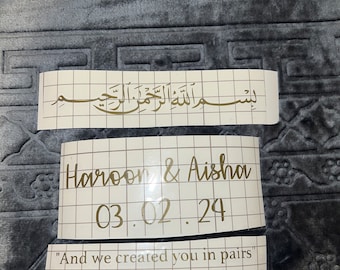 بسم الله الرحمن الرحيم
Haroon & Aisha
03.02.24
"And we created you in pairs"